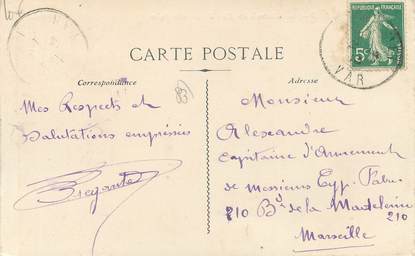 REPUBLIQUE FRANÇAISE
5c
VAR
CARTE POSTALE
Correspondance
Adresse
Mes Respects et
Salutations empressés
Monsieur
Alexandre
Capitaine d'Armement
de Messieurs Cyp. Fabre
210 Bd de la Madeleine
210
Marseille